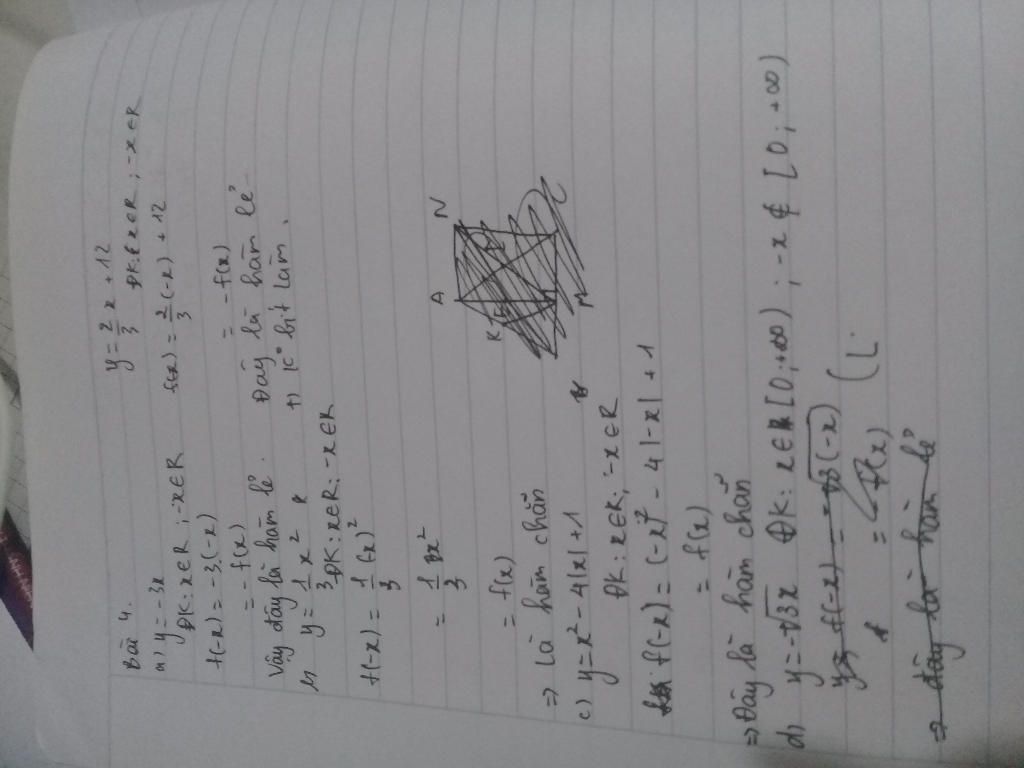 Bài 4.
a) y = -3x
ĐK: x ∈ R ; -x ∈ R
f(-x) = -3.(-x)
= - f(x)
Vậy đây là hàm lẻ.
y = 1/3 x²
ĐK: x ∈ R; -x ∈ R
f(-x) = 1/3 (x)²
= 1/3 x²
= f(x)
=> Là hàm chẵn
c) y = x² - 4|x| + 1
ĐK: x ∈ R; -x ∈ R
f(-x) = (-x)² - 4|-x| + 1
= f(x)
=> Đây là hàm chẵn
d) y = -√3x ĐK: x ∈ [0; +∞) ; -x ∉ [0; +∞)
f(-x) = (-x)
= f(x) (L
=> đây là hàm lẻ
y = 2/3 x + 12
ĐK x ∈ R ; -x ∈ R
f(x) = 2/3 (-x) + 12
= - f(x)
Đây là hàm lẻ
K° bit làm.
A N
K
M C